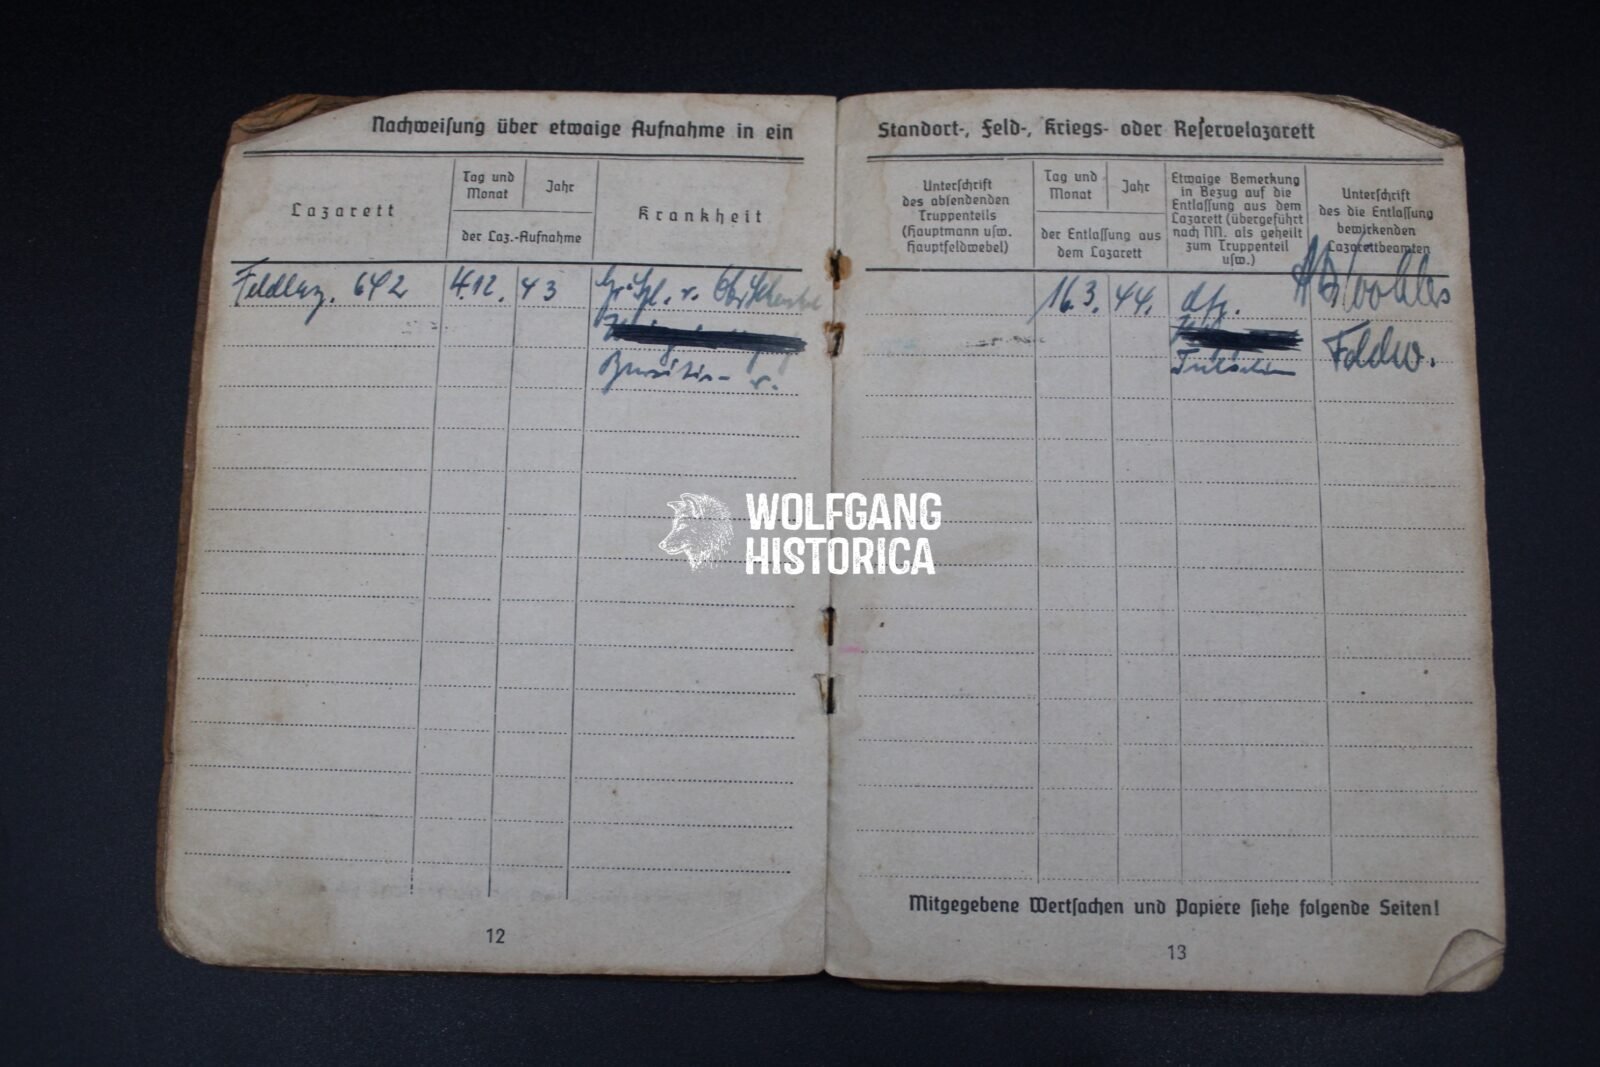 Nachweisung über etwaige Aufnahme in ein
Lazarett
Tag und
Monat
Jahr
der Laz.-Aufnahme
Krankheit
Feldlaz. 642
4.12.
43
Gr. Spl. r.
r.
Standort-, Feld-, Kriegs- oder Reservelazarett
Unterschrift
des absendenden
Truppenteils
(Hauptmann usw.
Hauptfeldwebel)
Tag und
Monat
Jahr
der Entlassung aus
dem Lazarett
Etwaige Bemerkung
in Bezug auf die
Entlassung aus dem
Lazarett (übergeführt
nach NN. als geheilt
zum Truppenteil
usw.)
Unterschrift
des die Entlassung
bewirkenden
Lazarettbeamten
16.3.
44.
dfg.
Feldw.
WOLFGANG
HISTORICA
Mitgegebene Wertsachen und Papiere siehe folgende Seiten!
12
13